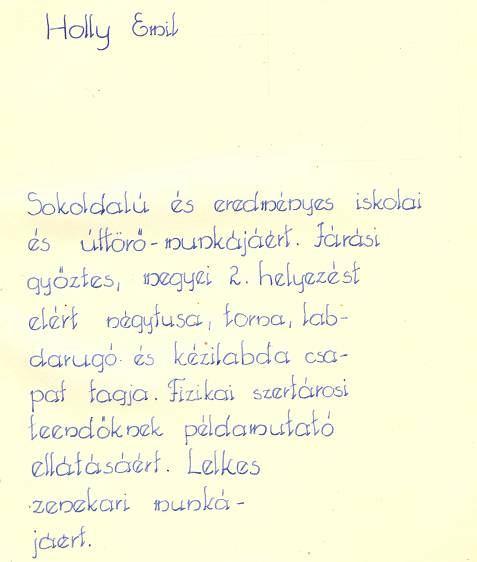 Holly Emil
Sokoldalú és eredményes iskolai
és úttörő-munkájáért. Járási
győztes, megyei 2. helyezést
elért négytusa, torna, lab-
darugó és kézilabda csa-
pat tagja. Fizikai szertárosi
teendőknek példamutató
ellátásáért. Lelkes
zenekari munká-
jáért.